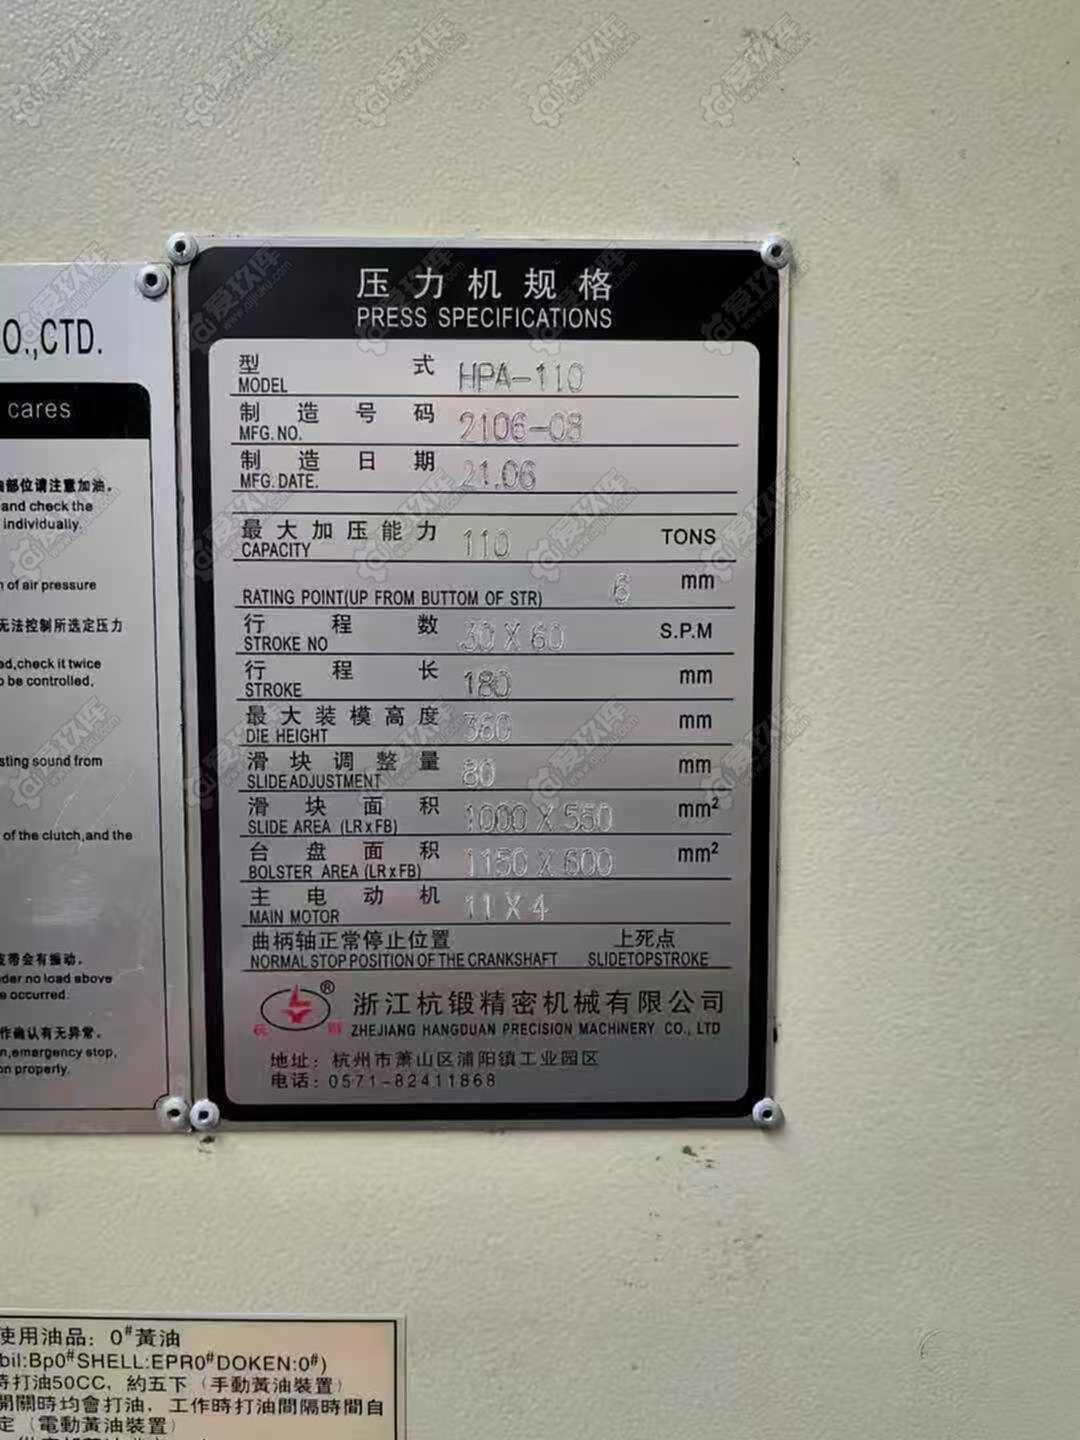 O.,CTD.
cares
油部位请注意加油。
and check the
individually.
of air pressure
无法控制所选定压力
ed,check it twice
be controlled,
sting sound from
of the clutch,and the
皮带会有振动。
der no load above
occurred.
作确认有无异常。
n,emergency stop,
on properly.
压力机规格
PRESS SPECIFICATIONS
型 式 HPA-110
MODEL
制造号码 2106-08
MFG. NO.
制造日期 21.06
MFG. DATE.
最大加压能力 110 TONS
CAPACITY
RATING POINT(UP FROM BUTTOM OF STR) 6 mm
行程数 30 X 60 S.P.M
STROKE NO
行程长 180 mm
STROKE
最大装模高度 360 mm
DIE HEIGHT
滑块调整量 80 mm
SLIDE ADJUSTMENT
滑块面积 1000 X 550 mm²
SLIDE AREA (LRxFB)
台盘面积 1150 X 600 mm²
BOLSTER AREA (LRxFB)
主电动机 11 X 4
MAIN MOTOR
曲柄轴正常停止位置 上死点
NORMAL STOP POSITION OF THE CRANKSHAFT SLIDETOPSTROKE
® 浙江杭锻精密机械有限公司
杭 锻 ZHEJIANG HANGDUAN PRECISION MACHINERY CO., LTD
地址：杭州市萧山区浦阳镇工业园区
电话：0571-82411868
使用油品：0#黃油
bil:Bp0#SHELL:EPR0#DOKEN:0#)
時打油50CC，約五下（手動黃油裝置）
開關時均會打油，工作時打油間隔時間自
定（電動黃油裝置）
爱玖库
www.aijiuku.com